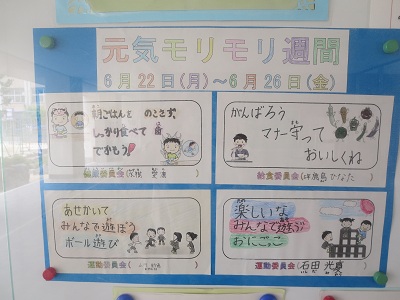 元気モリモリ週間
6月22日(月)～6月26日(金)
朝ごはんを のこさず、
しっかり食べて
でかもう!
委員会(
がんばろう
マナー守って
おいしくね
給食委員会(
ひなた)
あせかいて
みんなで遊ぼう
ボール遊び
運動委員会(
楽しいな
みんなで遊ぶ
おにごっこ
運動委員会(石田